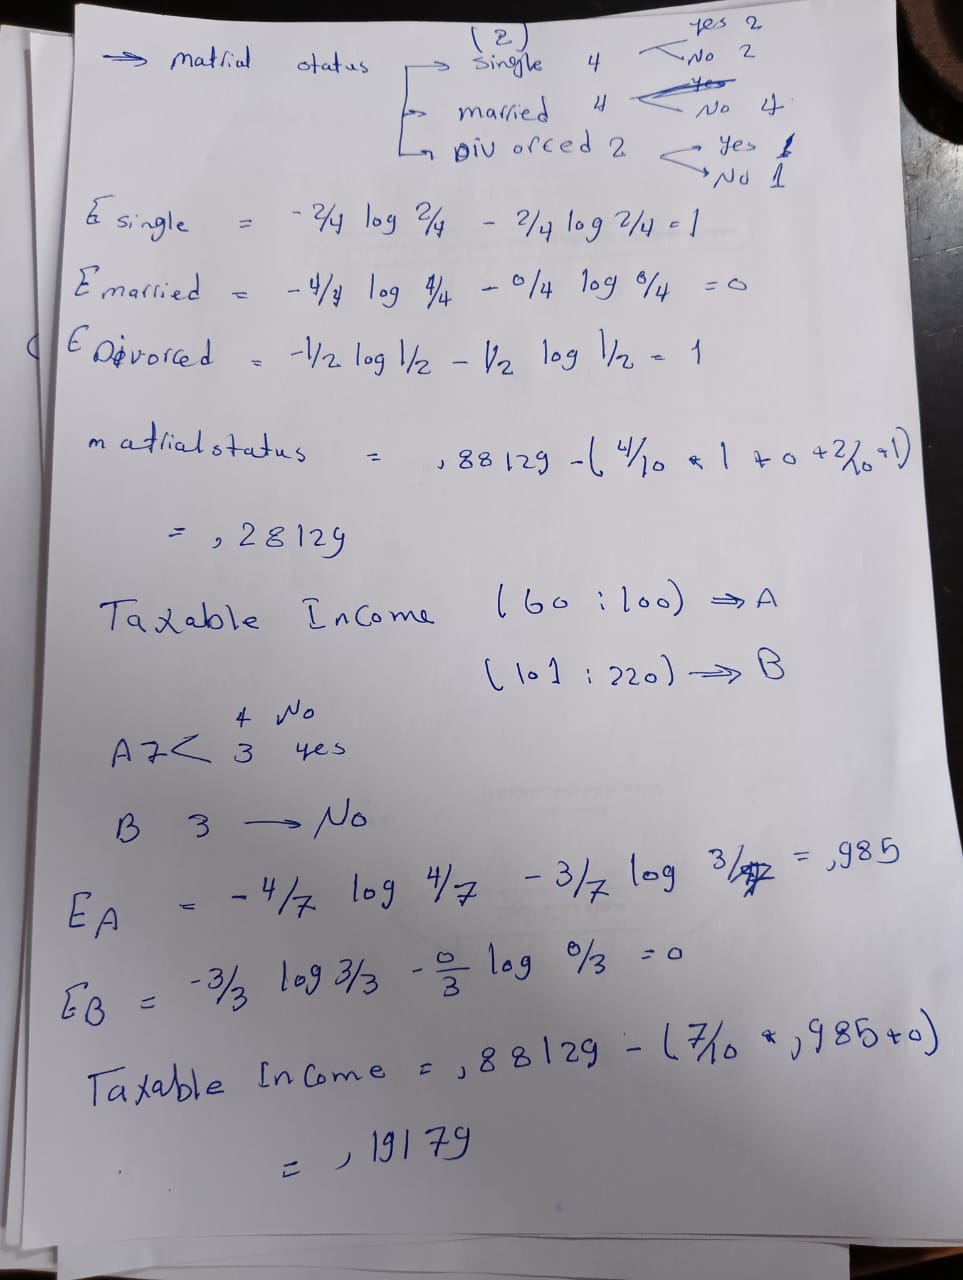 (2)
→ matrial status → single 4 yes 2
No 2
→ married 4 No 4
→ Divorced 2 → yes 1
→ No 1
E single = - 2/4 log 2/4 - 2/4 log 2/4 = 1
E married = - 4/4 log 4/4 - 0/4 log 0/4 = 0
E Divorced = -1/2 log 1/2 - 1/2 log 1/2 = 1
matrial status = ,88129 - ( 4/10 * 1 + 0 + 2/10 * 1)
= ,28129
Taxable Income (60 : 100) ⇒ A
(101 : 220) ⇒ B
4 No
A 7 < 3 yes
B 3 → No
EA = - 4/7 log 4/7 - 3/7 log 3/7 = ,985
EB = -3/3 log 3/3 - 0/3 log 0/3 = 0
Taxable Income = ,88129 - (7/10 * ,985 + 0)
= ,19179